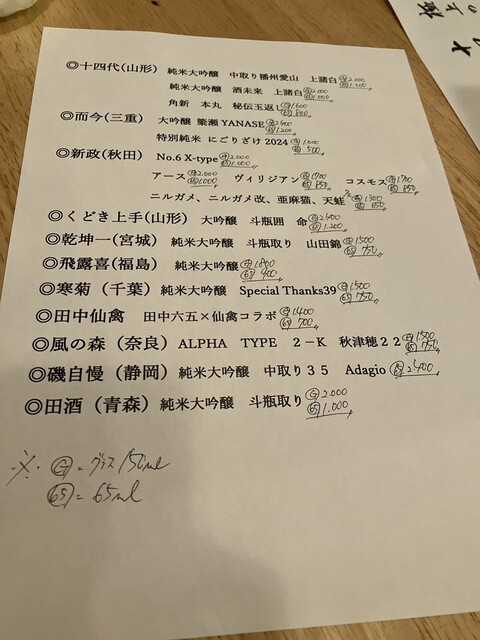 ◎十四代(山形) 純米大吟醸 中取り播州愛山 上諸白 Ⓖ2.000 ㊿1.000
純米大吟醸 酒未来 上諸白 Ⓖ2.000
角新 本丸 秘伝玉返し Ⓖ1.600 800
◎而今(三重) 大吟醸 簗瀬YANASE Ⓖ2.400 1.200
特別純米 にごりざけ2024 Ⓖ1.000 500
◎新政(秋田) No.6 X-type Ⓖ2.000 1.000
アース Ⓖ2.000 1.000 ヴィリジアン Ⓖ1700 850 コスモス Ⓖ1700 850
ニルガメ、ニルガメ改、亜麻猫、天蛙 1300 650
◎くどき上手(山形) 大吟醸 斗瓶囲 命 Ⓖ2.400 1.200
◎乾坤一(宮城) 純米大吟醸 斗瓶取り 山田錦 Ⓖ1500 750
◎飛露喜(福島) 純米大吟醸 Ⓖ1.800 900
◎寒菊(千葉) 純米大吟醸 Special Thanks39 Ⓖ1.500 750
◎田中仙禽 田中六五×仙禽コラボ Ⓖ1.400 700
◎風の森(奈良) ALPHA TYPE 2-K 秋津穂22 Ⓖ1500 750
◎磯自慢(静岡) 純米大吟醸 中取り35 Adagio 65 2.400
◎田酒(青森) 純米大吟醸 斗瓶取り Ⓖ2.000 65 1.000
※ Ⓖ=グラス150ml
65=65ml